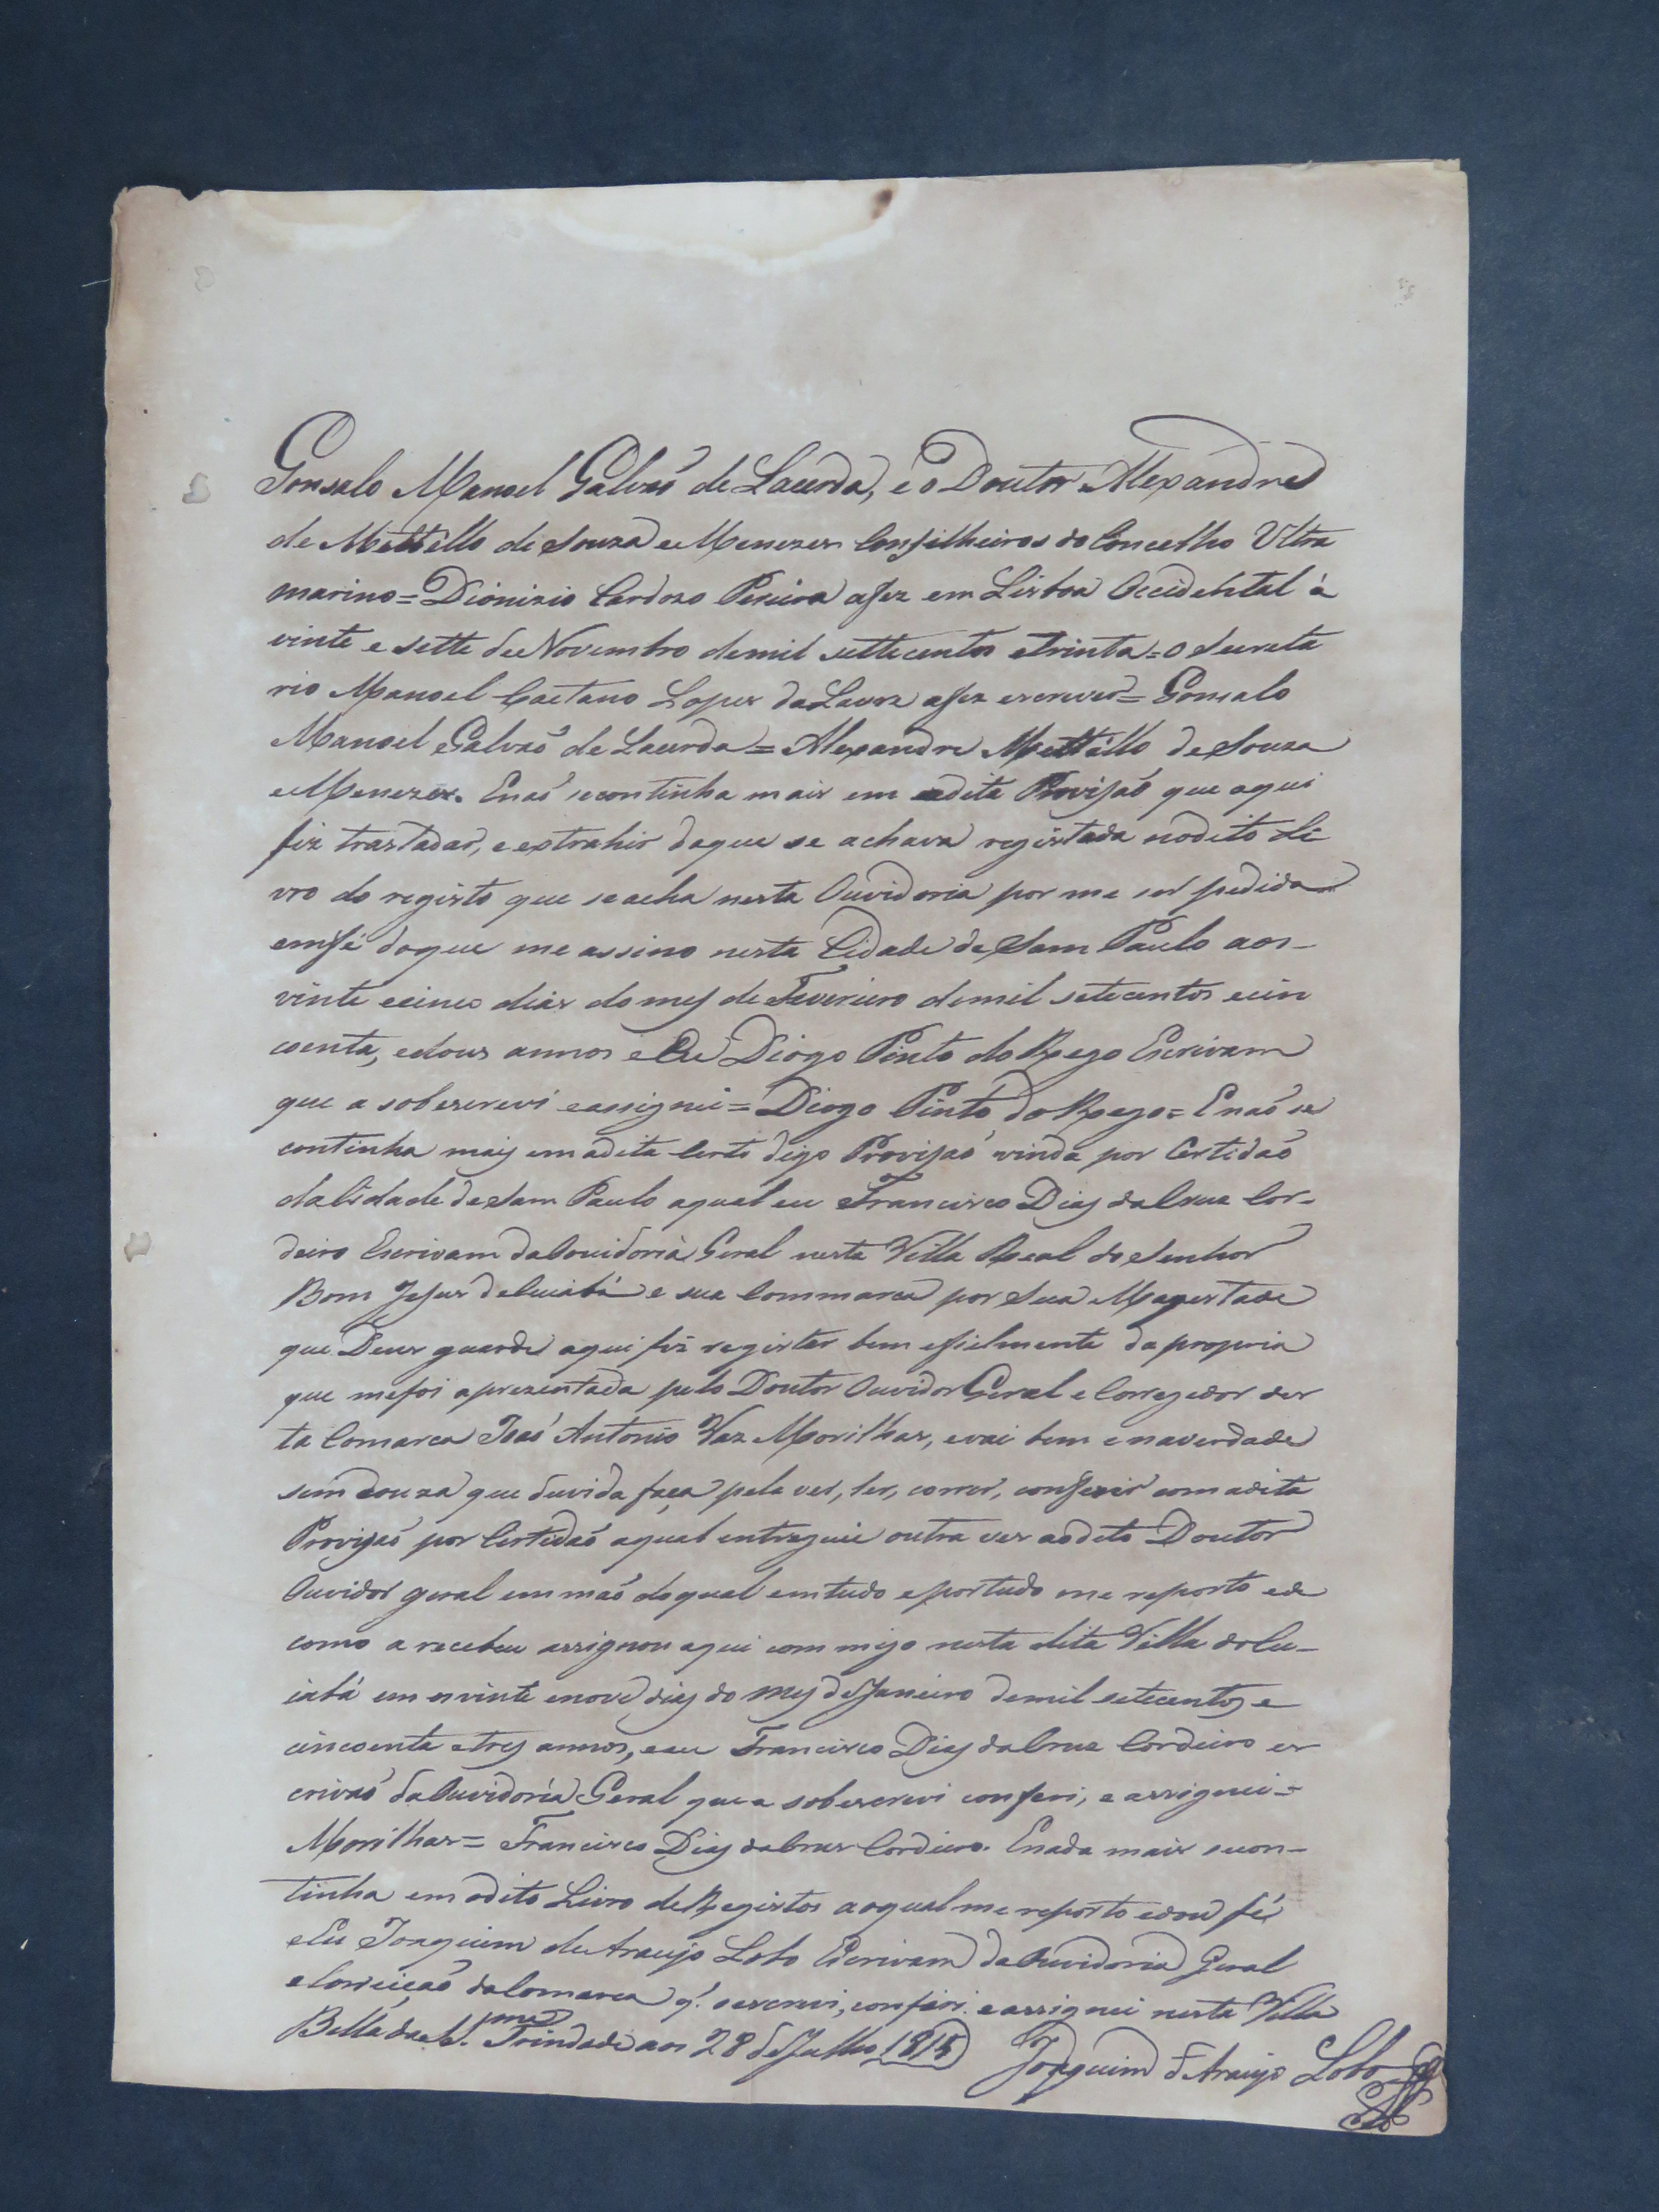 Gonsalo Manoel Galvaõ de Lacerda, e o Doutor Alexandre
de Mettello de Souza e Menezes Conselheiros do Concelho Ultra
marino = Dionizio Cardozo Pereira a fez em Lisboa Occidental à
vinte e sette de Novembro de mil settecentos e trinta = O Secreta
rio Manoel Caetano Lopes da Lavra a fez escrever = Gonsalo
Manoel Galvaõ de Lacerda = Alexandre Mettello de Souza
e Menezes. E naõ se continha mais em a dita Provisaõ que aqui
fiz trasladar, e extrahir da que se achava registada no dito Li
vro do registo que se acha nesta Ouvidoria por me ser pedida
em fé do que me assino nesta Cidade de Sam Paulo aos
vinte e cinco dias do mes de Fevereiro de mil setecentos e cin
coenta, e dous annos e Eu Diogo Pinto do Rego Escrivam
que a sobescrevi e assignei = Diogo Pinto do Rego = E naõ se
continha mais em a dita Certi digo Provisaõ vinda por Certidaõ
da Cidade de Sam Paulo a qual eu Francisco Dias da Cruz Cor-
deiro Escrivam da Ouvidoria Geral nesta Villa Real do Senhor
Bom Jesus do Cuiabá e sua Commarca por Sua Magestade
que Deus guarde aqui fiz registar bem e fielmente da propria
que me foi aprezentada pelo Doutor Ouvidor Geral e Corregedor des
ta Comarca Joaõ Antonio Vaz Morilhas, e vai bem e na verdade
sem couza que duvida faça pela ver, ler, correr, conferir com a dita
Provisaõ por Certidaõ a qual entreguei outra ves ao dito Doutor
Ouvidor geral em maõ do qual em tudo e por tudo me reporto e de
como a recebeu assignou aqui com migo nesta dita Villa do Cu-
iabá em os vinte e nove dias do mes de Janeiro de mil setecentos e
cincoenta e tres annos, e eu Francisco Dias da Cruz Cordeiro es
crivaõ da Ouvidoria Geral que a sobescrevi conferi, e assignei =
Morilhas = Francisco Dias da Cruz Cordeiro. E nada mais se con-
tinha em o dito Livro de Registos ao qual me reporto e dou fé
e Eu Joaquim de Araujo Lobo Escrivam da Ouvidoria Geral
e Correiçaõ da Comarca q. o escrevi, conferi e assignei nesta Villa
Bella da S.ma Trindade aos 28 de Julho 1815 Joaquim d'Araujo Lobo